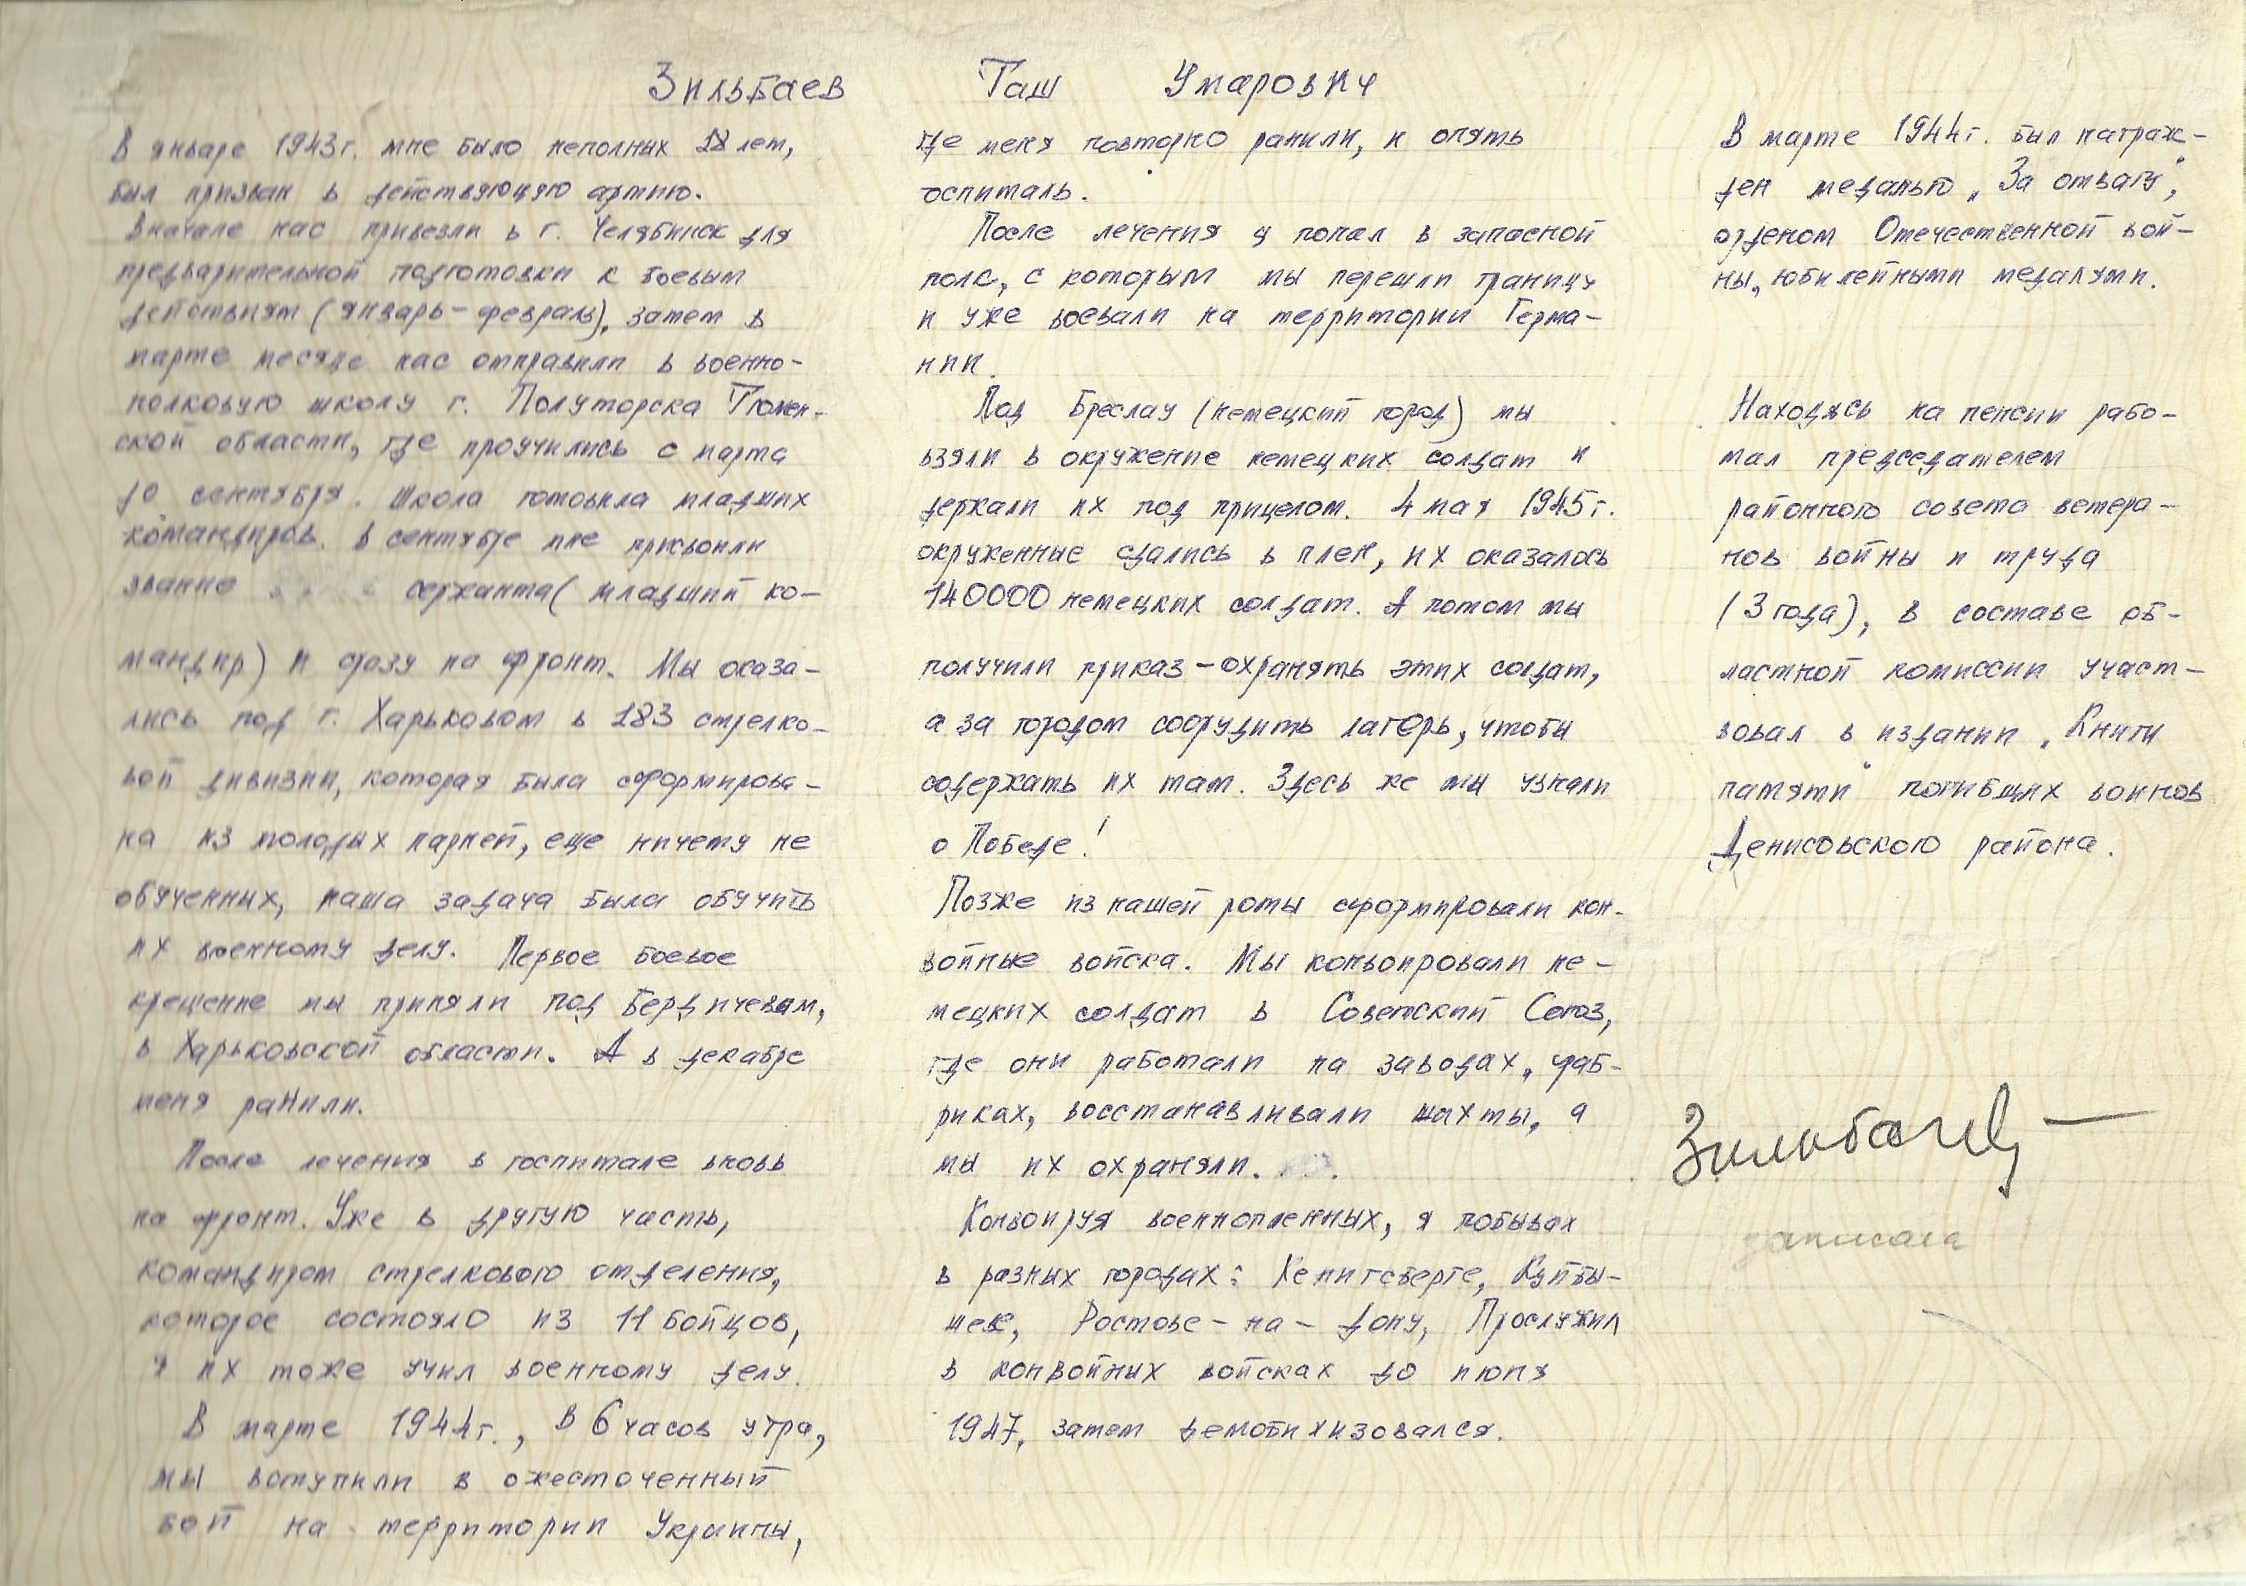 Зильбаев Таш Умарович
В январе 1943г. мне было неполных 18 лет,
был призван в действующую армию.
Вначале нас привезли в г. Челябинск для
предварительной подготовки к боевым
действиям (январь-февраль), затем в
марте месяце нас отправили в военно-
полковую школу г. Полуторска Тюмен-
ской области, где проучились с марта
до сентября. Школа готовила младших
командиров. В сентябре мне присвоили
звание сержанта (младший ко-
мандир) и сразу на фронт. Мы оказа-
лись под г. Харьковом в 183 стрелко-
вой дивизии, которая была сформирова-
на из молодых парней, еще ничему не
обученных, наша задача была обучить
их военному делу. Первое боевое
крещение мы приняли под Бердичевам,
в Харьковской области. А в декабре
меня ранили.
После лечения в госпитале вновь
на фронт. Уже в другую часть,
командиром стрелкового отделения,
которое состояло из 11 бойцов,
я их тоже учил военному делу.
В марте 1944г., в 6 часов утра,
мы вступили в ожесточенный
бой на территории Украины,
где меня повторно ранили, и опять
госпиталь.
После лечения я попал в запасной
полк, с которым мы перешли границу
и уже воевали на территории Герма-
нии.
Под Бреслау (немецкий город) мы
взяли в окружение немецких солдат и
держали их под прицелом. 4 мая 1945г.
окруженные сдались в плен, их оказалось
140000 немецких солдат. А потом мы
получили приказ - охранять этих солдат,
а за городом соорудить лагерь, чтобы
содержать их там. Здесь же мы узнали
о Победе!
Позже из нашей роты сформировали кон-
войные войска. Мы конвоировали не-
мецких солдат в Советский Союз,
где они работали на заводах, фаб-
риках, восстанавливали шахты, а
мы их охраняли.
Конвоируя военнопленных, я побывал
в разных городах: Кенигсберге, Куйбы-
шеве, Ростове-на-Дону, Прослужил
в конвойных войсках до июня
1947, затем демобилизовался.
В марте 1944г. был награж-
ден медалью „За отвагу",
орденом Отечественной вой-
ны, юбилейными медалями.
Находясь на пенсии рабо-
тал председателем
районного совета ветера-
нов войны и труда
(3 года), в составе об-
ластной комиссии участ-
вовал в издании „Книги
памяти" погибших воинов
Денисовского района.
Зильбаев
записала